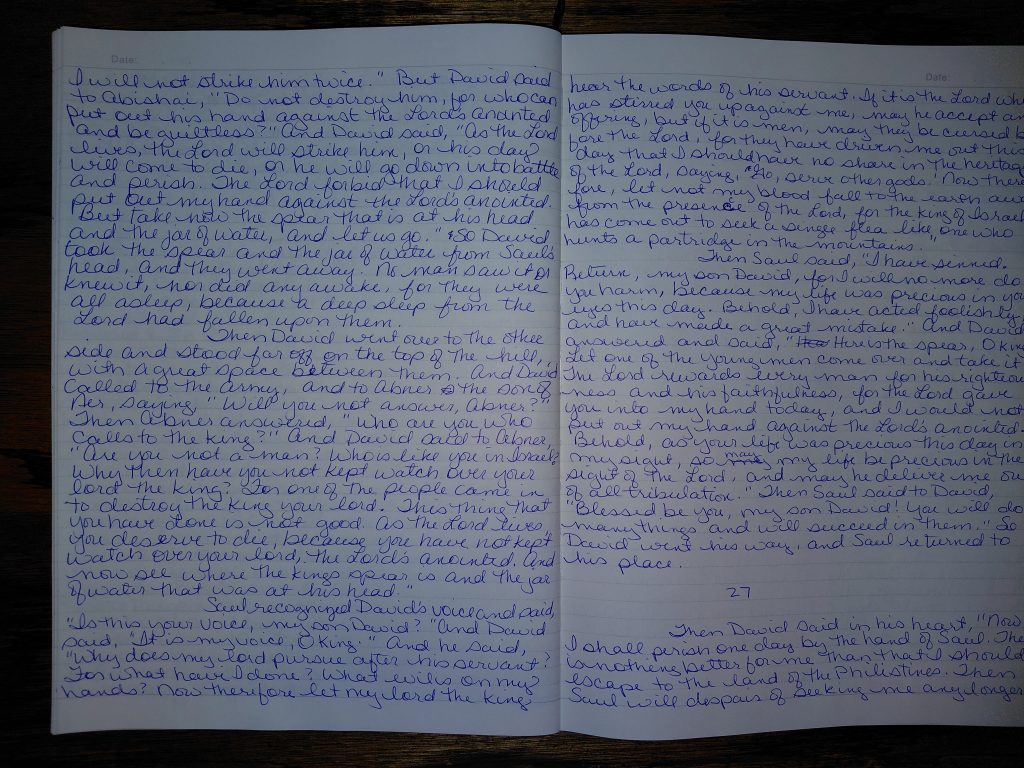 Date:
I will not strike him twice." But David said
to Abishai, "Do not destroy him, for who can
put out his hand against the Lord's anointed
and be guiltless?" And David said, "As the Lord
lives, the Lord will strike him, or his day
will come to die, or he will go down into battle
and perish. The Lord forbid that I should
put out my hand against the Lord's anointed.
But take now the spear that is at his head
and the jar of water, and let us go." So David
took the spear and the jar of water from Saul's
head, and they went away. No man saw it or
knew it, nor did any awake, for they were
all asleep, because a deep sleep from the
Lord had fallen upon them.
Then David went over to the other
side and stood far off on the top of the hill,
with a great space between them. And David
called to the army, and to Abner the son of
Ner, saying, "Will you not answer, Abner?"
Then Abner answered, "Who are you who
calls to the king?" And David said to Abner,
"Are you not a man? Who is like you in Israel?
Why then have you not kept watch over your
lord the king? For one of the people came in
to destroy the king your lord. This thing that
you have done is not good. As the Lord lives
you deserve to die, because you have not kept
watch over your lord, the Lord's anointed. And
now see where the kings spear is and the jar
of water that was at his head."
Saul recognized David's voice and said,
"Is this your voice, my son David?" And David
said, "It is my voice, O King." And he said,
"Why does my lord pursue after his servant?
For what have I done? What evil is on my
hands? Now therefore let my lord the king
Date:
hear the words of his servant. If it is the Lord who
has stirred you up against me, may he accept an
offering, but if it is men, may they be cursed be
fore the Lord, for they have driven me out this
day that I should have no share in the heritage
of the Lord, saying, 'Go, serve other gods.' Now there
fore, let not my blood fall to the earth away
from the presence of the Lord, for the king of Israel
has come out to seek a single flea like one who
hunts a partridge in the mountains."
Then Saul said, "I have sinned.
Return, my son David, for I will no more do
you harm, because my life was precious in your
eyes this day. Behold, I have acted foolishly,
and have made a great mistake." And David
answered and said, "Here is the spear, O king
Let one of the young men come over and take it.
The Lord rewards every man for his righteous
ness and his faithfulness, for the Lord gave
you into my hand today, and I would not
put out my hand against the Lord's anointed.
Behold, as your life was precious this day in
my sight, so may my life be precious in the
sight of the Lord, and may he deliver me out
of all tribulation." Then Saul said to David,
"Blessed be you, my son David! You will do
many things and will succeed in them." So
David went his way, and Saul returned to
his place.
27
Then David said in his heart, "Now
I shall perish one day by the hand of Saul. There
is nothing better for me than that I should
escape to the land of the Philistines. Then
Saul will despair of seeking me any longer